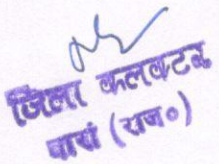 जिला कलक्टर
बारां (राज०)